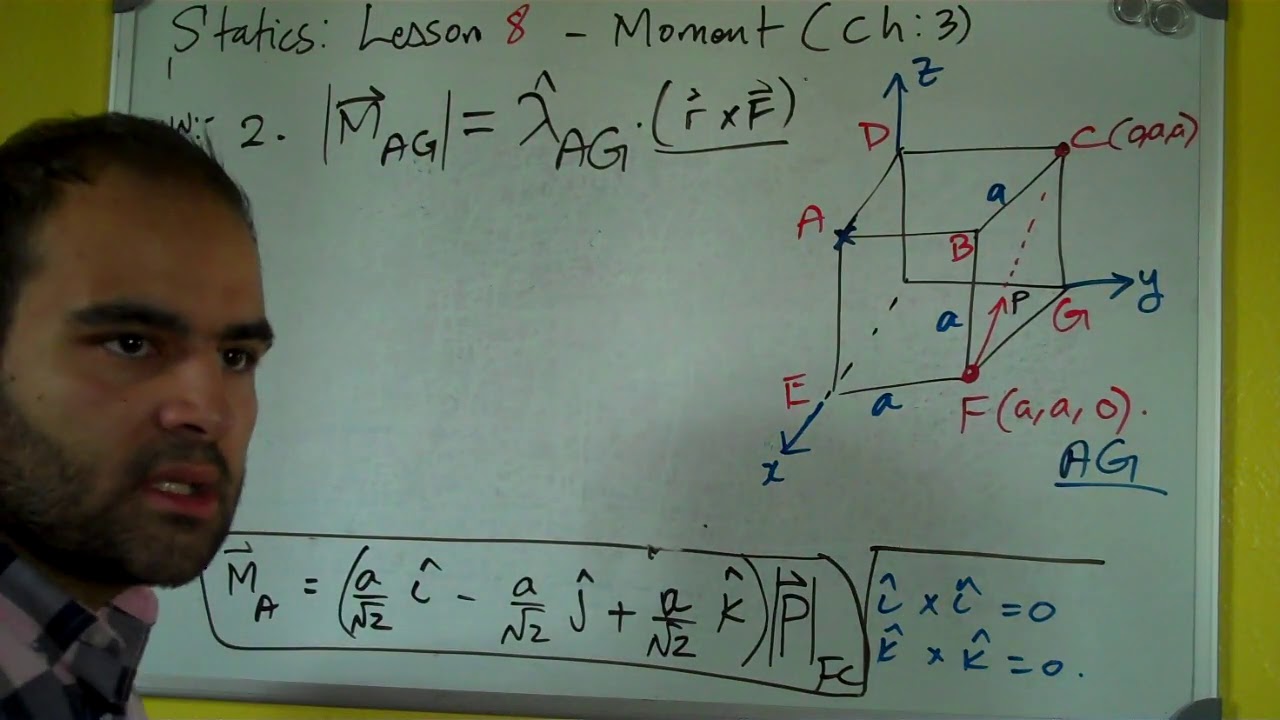 Statics: Lesson 8 - Moment (Ch: 3)
2. |M⃗_AG| = λ̂_AG · (r⃗ × F⃗)
z
D
C(0,a,a)
a
A
B
y
P
a
G
E
a
F(a,a,0).
x
AG
M⃗_A = (a/√2 î - a/√2 ĵ + a/√2 k̂)|P⃗|_FC
î × î = 0
k̂ × k̂ = 0.